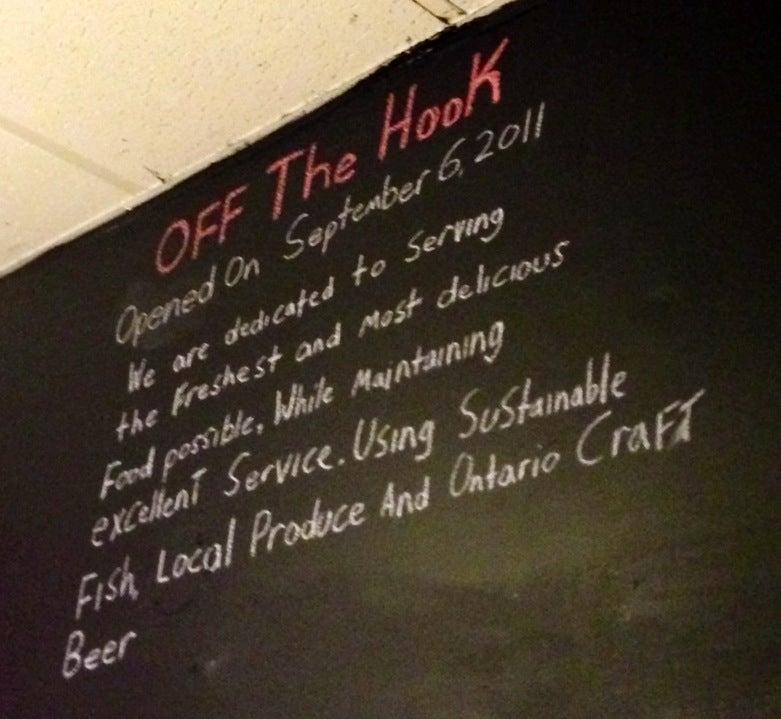 OFF The Hook
Opened On September 6, 2011
We are dedicated to Serving
the Freshest and Most delicious
Food possible, While Maintaining
excellent Service. Using Sustainable
Fish, Local Produce And Ontario Craft
Beer